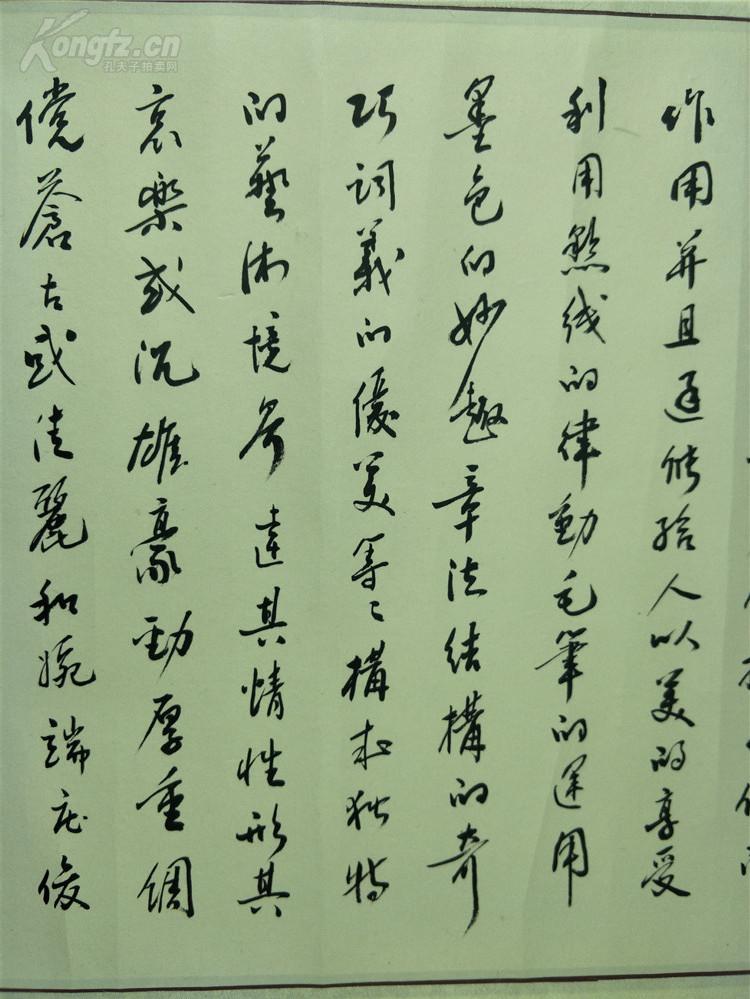 作用并且还能给人以美的享受
利用点线的律動毛筆的运用
墨色的妙趣章法结構的奇
巧词義的優美等々構成独特
的藝术境界達其情性形其
哀樂或沉雄豪勁厚重倜
儻蒼古或佳麗和婉端庄俊
Kongfz.cn
孔夫子拍卖网